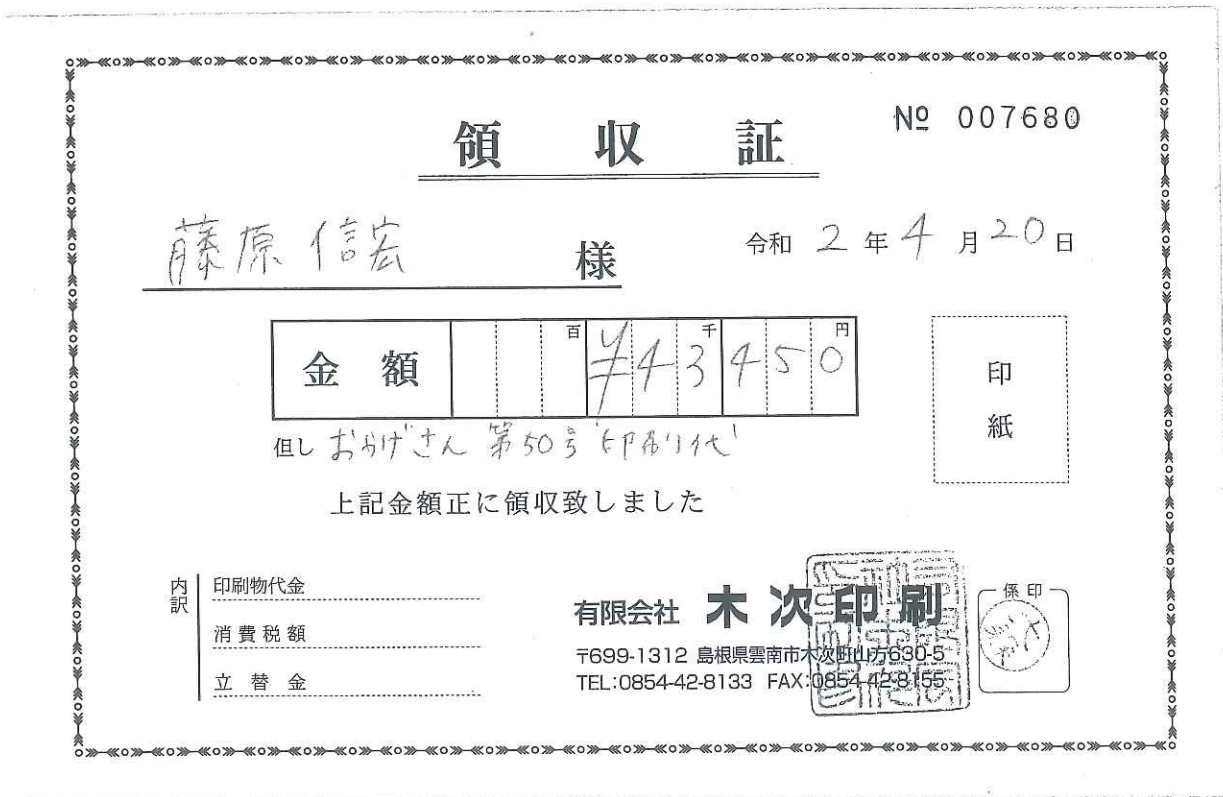 領収証
№ 007680
藤原信宏 様
令和 2 年 4 月 20 日
金額 百 千 円 ¥43450
但し おかげさん 第50号 印刷代
上記金額正に領収致しました
印紙
内訳
印刷物代金
消費税額
立替金
有限会社 木次印刷
〒699-1312 島根県雲南市木次町山方630-5
TEL:0854-42-8133 FAX:0854-42-8155
係印